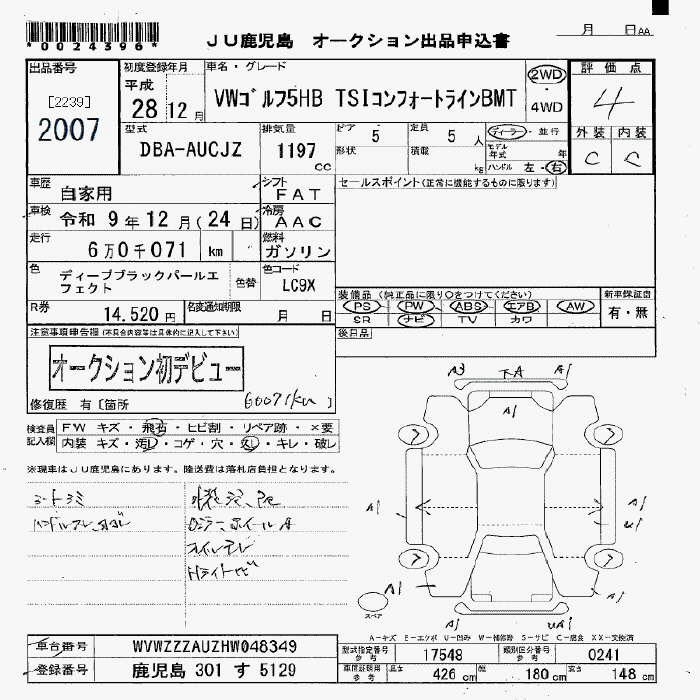 *0024396*
JU鹿児島 オークション出品申込書
月 日AA
出品番号
[2239]
2007
初度登録年月
平成
28 12 月
車名・グレード
VWゴルフ5HB TSIコンフォートラインBMT
2WD
・
4WD
評価点
4
外装 内装
C C
型式
DBA-AUCJZ
排気量
1197
cc
ドア 5
形状
定員 5 人
積載 kg
ディーラー・並行
モデル年式 年
ハンドル 左・右
車歴
自家用
シフト
FAT
セールスポイント(正常に機能するものに限ります)
車検
令和 9年 12月(24日)
冷房
AAC
走行
6万0千071 km
燃料
ガソリン
色
ディープブラックパールエフェクト
色替
色コード
LC9X
R券
14,520円
名変通知期限
月 日
装備品(純正品に限り○をつけてください)
PS PW ABS エアB AW
SR ナビ TV カワ
新車保証書
有・無
後日品
注意事項申告欄(不具合内容等は具体的に記入して下さい)
オークション初デビュー
修復歴 有〔箇所 60071km 〕
検査員記入欄
FW キズ・飛石・ヒビ割・リペア跡・×要
内装 キズ・汚れ・コゲ・穴・欠し・キレ・破レ
※現車はJU鹿児島にあります。陸送費は落札店負担となります。
シートシミ
ハンドルスレ
ホイールA
Hライト
A3 A1
下A
A1
A1 A1
U1
A1 A1
スペア
A1 UA1
A-キズ E-エクボ U-凹み W-補修跡 S-サビ C-腐食 XX-交換済
車台番号 WVWZZZAUZHW048349
登録番号 鹿児島 301 す 5129
型式指定番号 参考 17548
類別区分番号 参考 0241
車両諸元 参考 長さ 426 cm 幅 180 cm 高さ 148 cm